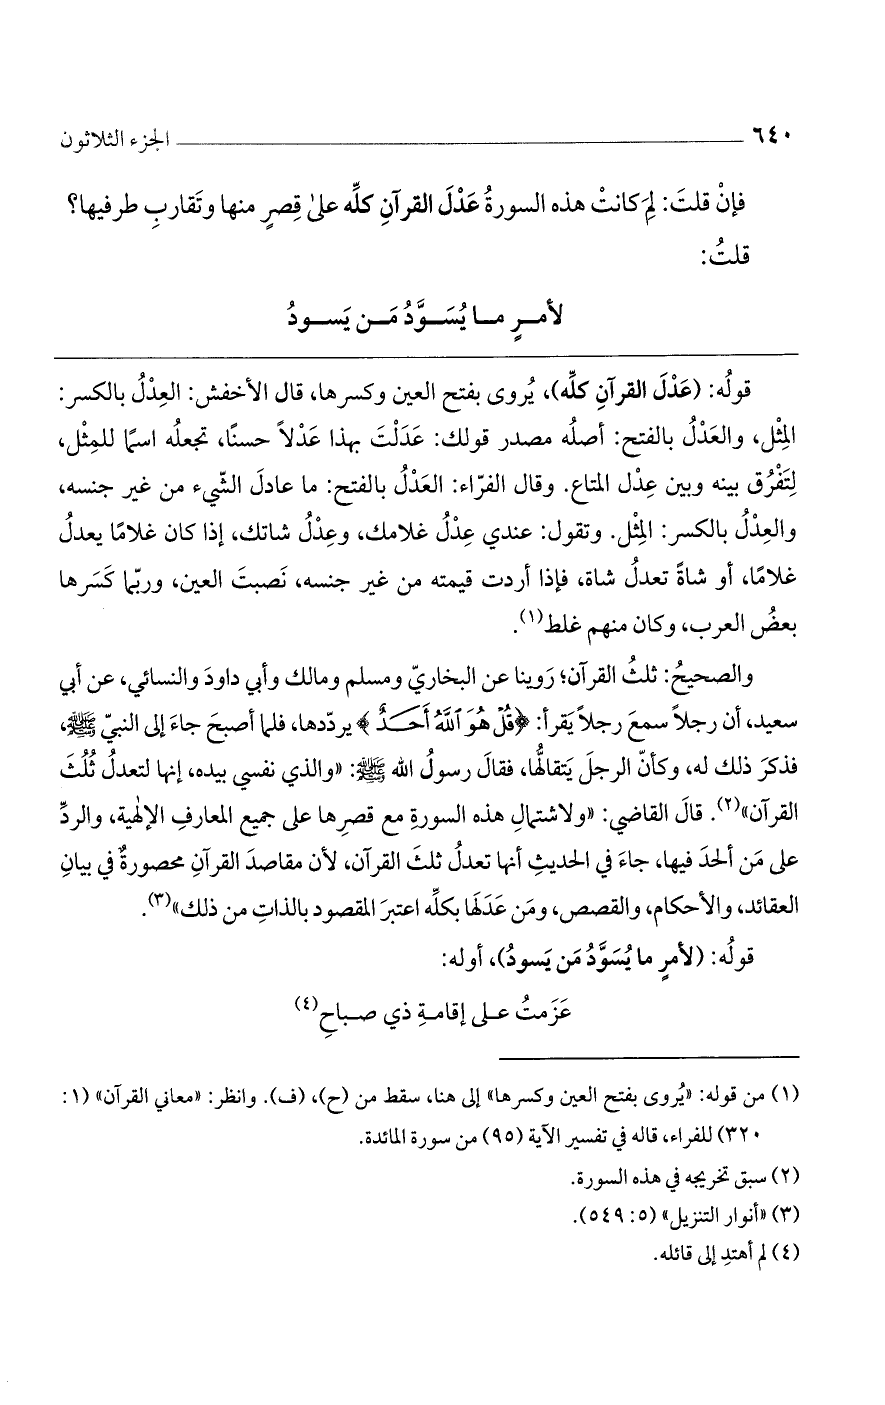 ٦٤٠ الجزء الثلاثون
فإنْ قلتَ: لِمَ كانتْ هذه السورةُ عَدْلَ القرآنِ كلِّه علىٰ قِصرٍ منها وتَقاربِ طرفيها؟
قلتُ:
لأمـرٍ مـا يُسَـوَّدُ مَـن يَسـودُ
قولُه: (عَدْلَ القرآنِ كلِّه)، يُروى بفتح العين وكسرها، قال الأخفش: العِدْلُ بالكسر:
المِثْل، والعَدْلُ بالفتح: أصلُه مصدر قولك: عَدَلْتَ بهذا عَدْلاً حسنًا، تجعلُه اسمًا للمِثْل،
لِتَفْرُق بينه وبين عِدْل المتاع. وقال الفرّاء: العَدْلُ بالفتح: ما عادلَ الشّيء من غير جنسه،
والعِدْلُ بالكسر: المِثْل. وتقول: عندي عِدْلُ غلامك، وعِدْلُ شاتك، إذا كان غلامًا يعدلُ
غلامًا، أو شاةً تعدلُ شاة، فإذا أردت قيمته من غير جنسه، نَصبتَ العين، وربّما كَسَرها
بعضُ العرب، وكان منهم غلط(١).
والصحيحُ: ثلثُ القرآن؛ رَوينا عن البخاريّ ومسلم ومالك وأبي داودَ والنسائي، عن أبي
سعيد، أن رجلاً سمعَ رجلاً يَقرأ: ﴿قُلْ هُوَ ٱللَّهُ أَحَـدٌ﴾ يردّدها، فلما أصبحَ جاءَ إلى النبيّ ﷺ،
فذكرَ ذلك له، وكأنّ الرجلَ يَتقالُّها، فقالَ رسولُ الله ﷺ: «والذي نفسي بيده، إنها لتعدلُ ثُلُثَ
القرآن»(٢). قالَ القاضي: «ولاشتمالِ هذه السورةِ مع قصرِها على جميع المعارفِ الإلٰهية، والردِّ
على مَن ألحدَ فيها، جاءَ في الحديثِ أنها تعدلُ ثلثَ القرآن، لأن مقاصدَ القرآنِ محصورةٌ في بيانِ
العقائد، والأحكام، والقصص، ومَن عَدَلَها بكلِّه اعتبرَ المقصود بالذاتِ من ذلك»(٣).
قولُه: (لأمرٍ ما يُسَوَّدُ مَن يَسودُ)، أوله:
عَزَمتُ عـلى إقامـةِ ذي صبـاحِ(٤)
(١) من قوله: «يُروى بفتح العين وكسرها» إلى هنا، سقط من (ح)، (ف). وانظر: «معاني القرآن» (١:
٣٢٠) للفراء، قاله في تفسير الآية (٩٥) من سورة المائدة.
(٢) سبق تخريجه في هذه السورة.
(٣) «أنوار التنزيل» (٥: ٥٤٩).
(٤) لم أهتدِ إلى قائله.